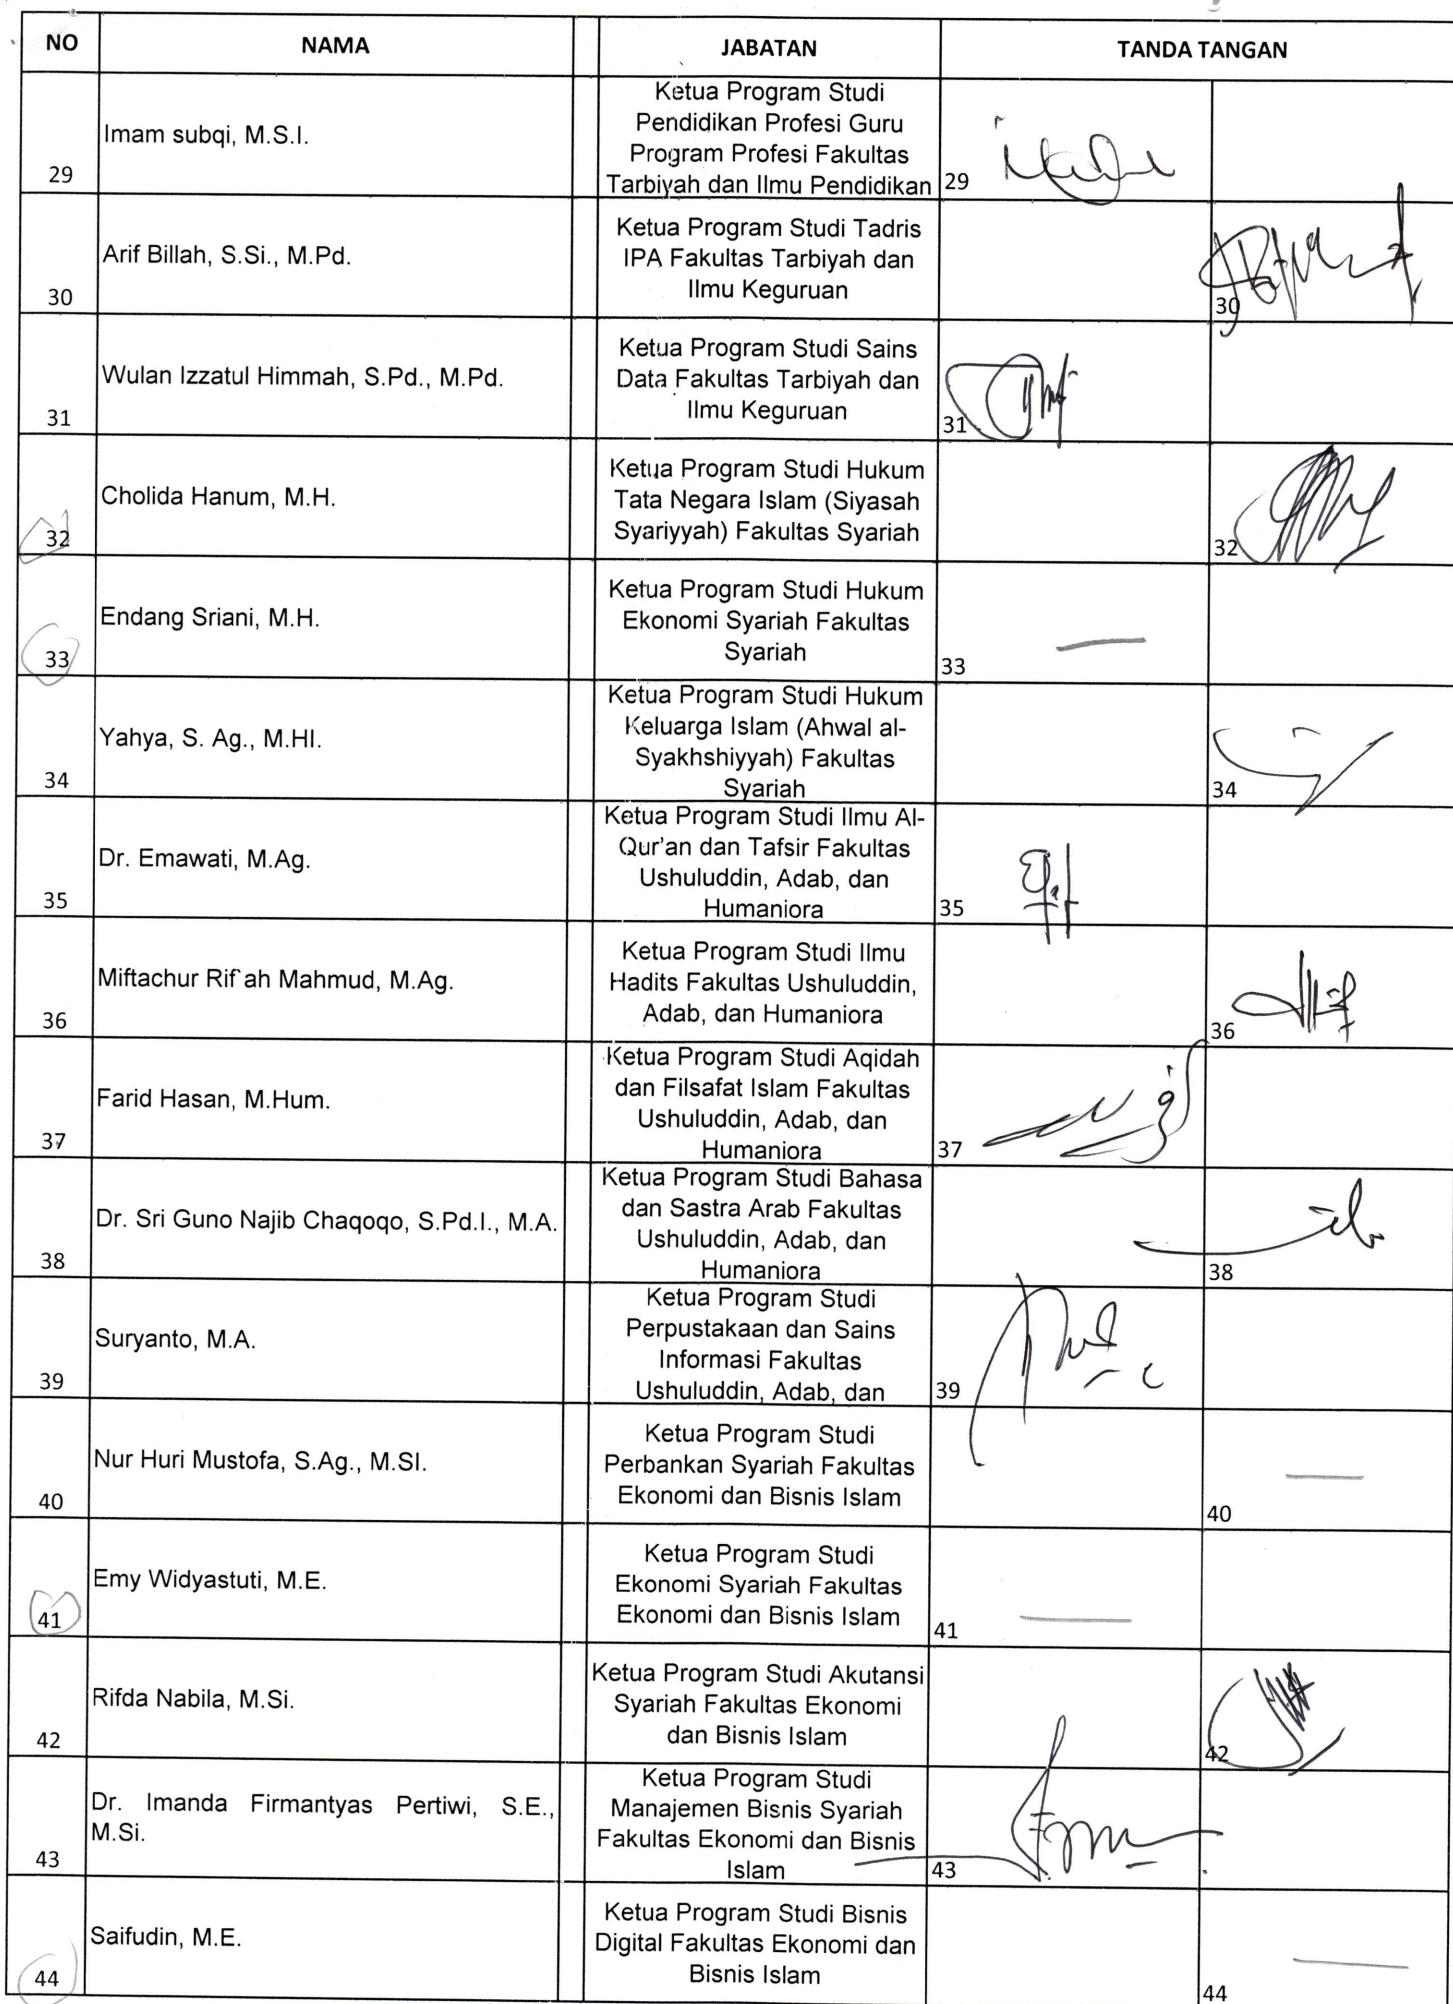 NO NAMA JABATAN TANDA TANGAN
Imam subqi, M.S.I.
29
Ketua Program Studi
Pendidikan Profesi Guru
Program Profesi Fakultas
Tarbiyah dan Ilmu Pendidikan
29
Arif Billah, S.Si., M.Pd.
30
Ketua Program Studi Tadris
IPA Fakultas Tarbiyah dan
Ilmu Keguruan
30
Wulan Izzatul Himmah, S.Pd., M.Pd.
31
Ketua Program Studi Sains
Data Fakultas Tarbiyah dan
Ilmu Keguruan
31
Cholida Hanum, M.H.
32
Ketua Program Studi Hukum
Tata Negara Islam (Siyasah
Syariyyah) Fakultas Syariah
32
Endang Sriani, M.H.
33
Ketua Program Studi Hukum
Ekonomi Syariah Fakultas
Syariah
33
Yahya, S. Ag., M.HI.
34
Ketua Program Studi Hukum
Keluarga Islam (Ahwal al-
Syakhshiyyah) Fakultas
Syariah
34
Dr. Emawati, M.Ag.
35
Ketua Program Studi Ilmu Al-
Qur'an dan Tafsir Fakultas
Ushuluddin, Adab, dan
Humaniora
35
Miftachur Rif'ah Mahmud, M.Ag.
36
Ketua Program Studi Ilmu
Hadits Fakultas Ushuluddin,
Adab, dan Humaniora
36
Farid Hasan, M.Hum.
37
Ketua Program Studi Aqidah
dan Filsafat Islam Fakultas
Ushuluddin, Adab, dan
Humaniora
37
Dr. Sri Guno Najib Chaqoqo, S.Pd.I., M.A.
38
Ketua Program Studi Bahasa
dan Sastra Arab Fakultas
Ushuluddin, Adab, dan
Humaniora
38
Suryanto, M.A.
39
Ketua Program Studi
Perpustakaan dan Sains
Informasi Fakultas
Ushuluddin, Adab, dan
39
Nur Huri Mustofa, S.Ag., M.SI.
40
Ketua Program Studi
Perbankan Syariah Fakultas
Ekonomi dan Bisnis Islam
40
Emy Widyastuti, M.E.
41
Ketua Program Studi
Ekonomi Syariah Fakultas
Ekonomi dan Bisnis Islam
41
Rifda Nabila, M.Si.
42
Ketua Program Studi Akutansi
Syariah Fakultas Ekonomi
dan Bisnis Islam
42
Dr. Imanda Firmantyas Pertiwi, S.E.,
M.Si.
43
Ketua Program Studi
Manajemen Bisnis Syariah
Fakultas Ekonomi dan Bisnis
Islam
43
Saifudin, M.E.
44
Ketua Program Studi Bisnis
Digital Fakultas Ekonomi dan
Bisnis Islam
44